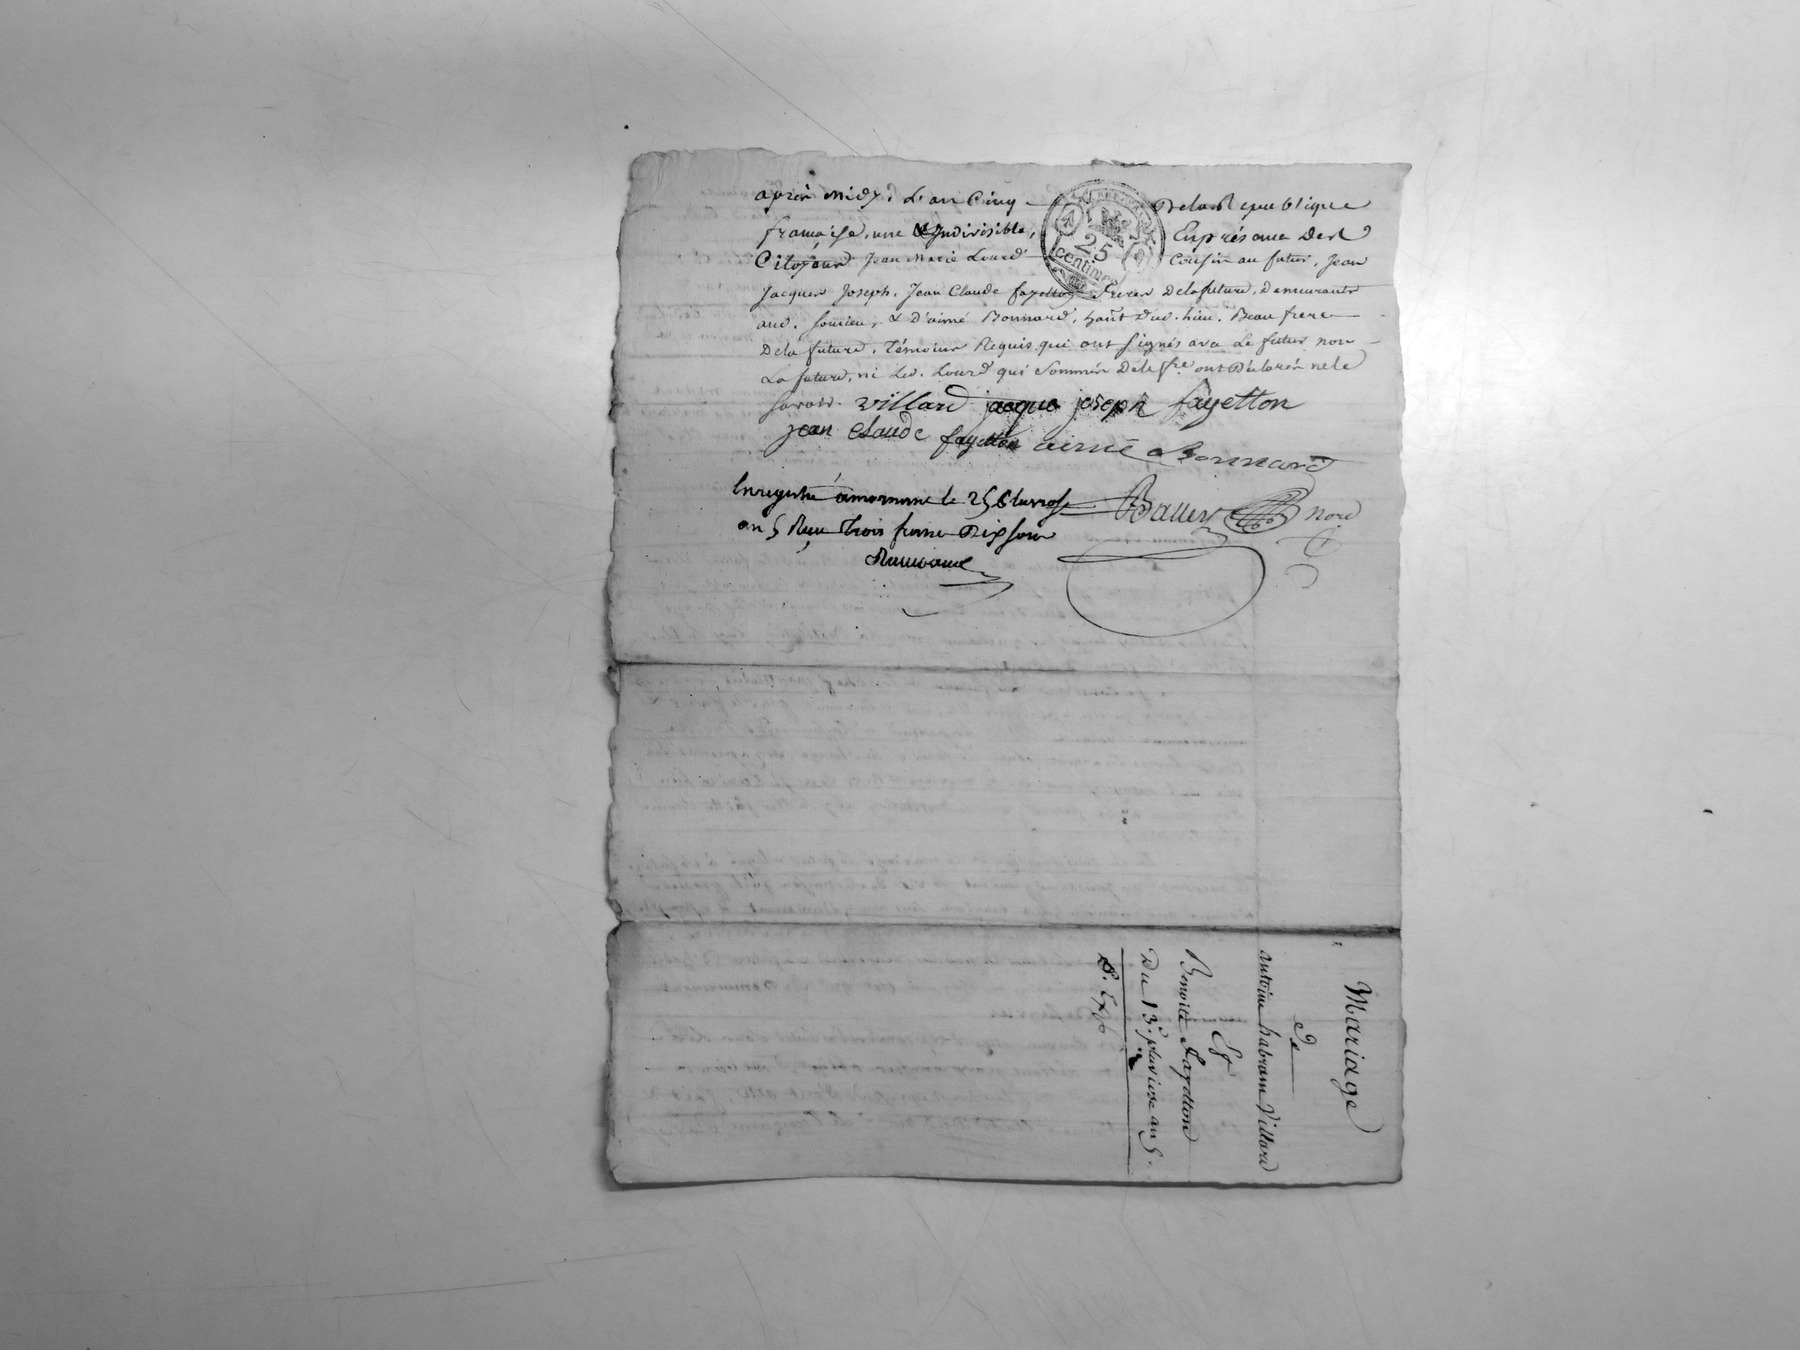 après midy. L'an Cinq De la Republique
française, une & Jndivisible, En présence Des
Citoyens Jean Marie Lourd Cousin au futur, Jean
Jacques Joseph, Jean Claude fayetton freres De la future, Demeurants
aud. Soucieu, & D'aimé Bonnard, hant dud. lieu, Beau frere
De la future, Témoins Requis qui ont signés avec Le futur non
La future, ni Led. Lourd qui Sommés De le fre ont Déclarés ne le
savoir. Villard jacque joseph fayetton
jean Claude fayetton aimé Bonnard
Enregistré à mornant le 25 Pluviose
an 5 Reçu Trois francs Dix sous
25
CENTIMES
Mariage
De
antoine habram Villard
Et
Benoite Fayetton
Du 13e. pluviose an 5.